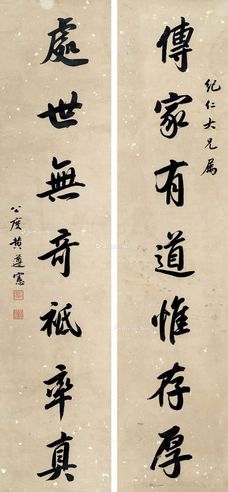 纪仁大兄属
傳家有道惟存厚
處世無奇祗率真
公度黄遵憲